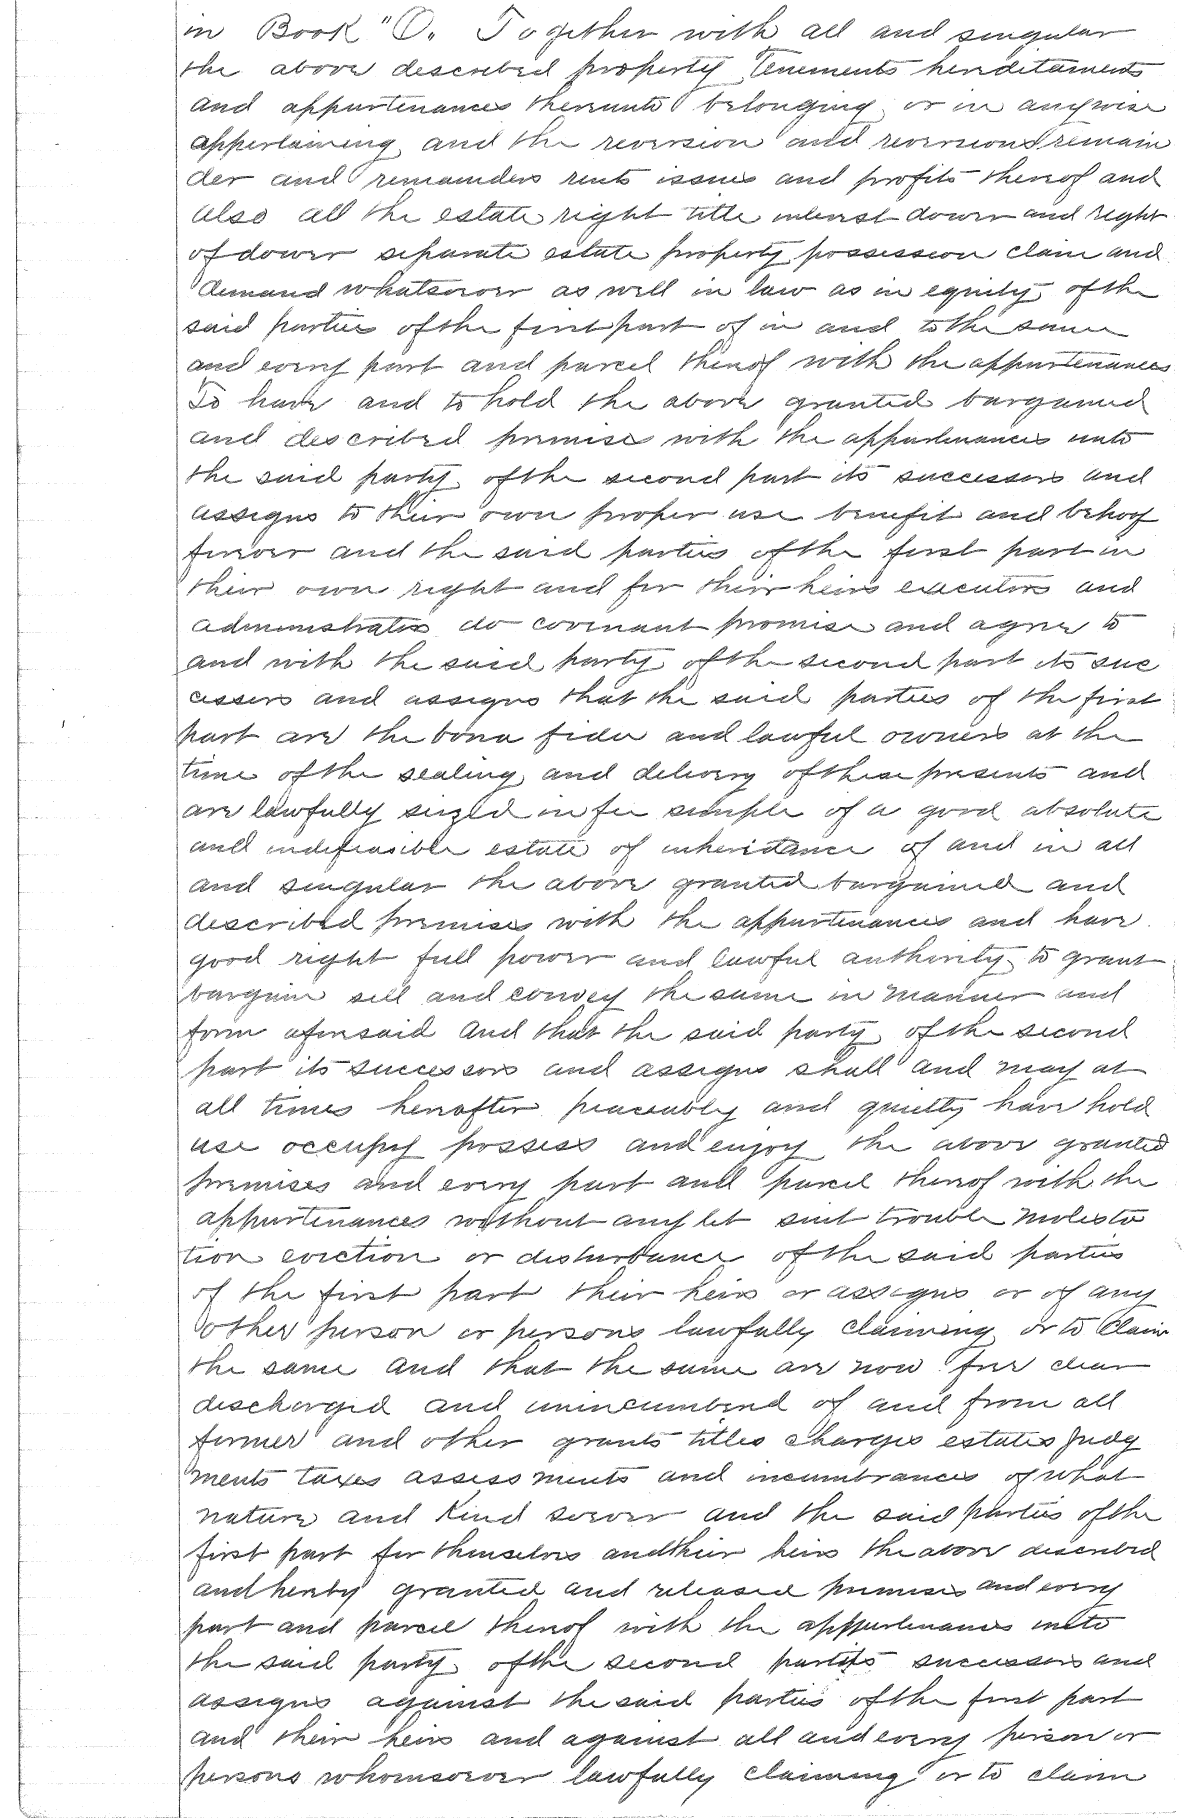 in Book "O. Together with all and singular
the above described property Tenements hereditaments
and appurtenances thereunto belonging or in anywise
appertaining and the reversion and reversions remain
der and remainders rents issues and profits thereof and
also all the estate right title interest dower and right
of dower separate estate property possession claim and
demand whatsoever as well in law as in equity of the
said parties of the first part of in and to the same
and every part and parcel thereof with the appurtenances
To have and to hold the above granted bargained
and described premises with the appurtenances unto
the said party of the second part its successors and
assigns to their own proper use benefit and behoof
forever and the said parties of the first part in
their own right and for their heirs executors and
administrators do covenant promise and agree to
and with the said party of the second part its suc
cessors and assigns that the said parties of the first
part are the bona fide and lawful owners at the
time of the sealing and delivery of these presents and
are lawfully seized in fee simple of a good absolute
and indefeasible estate of inheritance of and in all
and singular the above granted bargained and
described premises with the appurtenances and have
good right full power and lawful authority to grant
bargain sell and convey the same in manner and
form aforesaid And that the said party of the second
part its successors and assigns shall and may at
all times hereafter peaceably and quietly have hold
use occupy possess and enjoy the above granted
premises and every part and parcel thereof with the
appurtenances without any let suit trouble molesta
tion eviction or disturbance of the said parties
of the first part their heirs or assigns or of any
other person or persons lawfully claiming or to Claim
the same And that the same are now free clear
discharged and unincumbered of and from all
former and other grants titles charges estates Judg
ments taxes assessments and incumbrances of what
nature and Kind soever and the said parties of the
first part for themselves and their heirs the above described
and hereby granted and released premises and every
part and parcel thereof with the appurtenances unto
the said party of the second part its successors and
assigns against the said parties of the first part
and their heirs and against all and every person or
persons whomsoever lawfully claiming or to claim